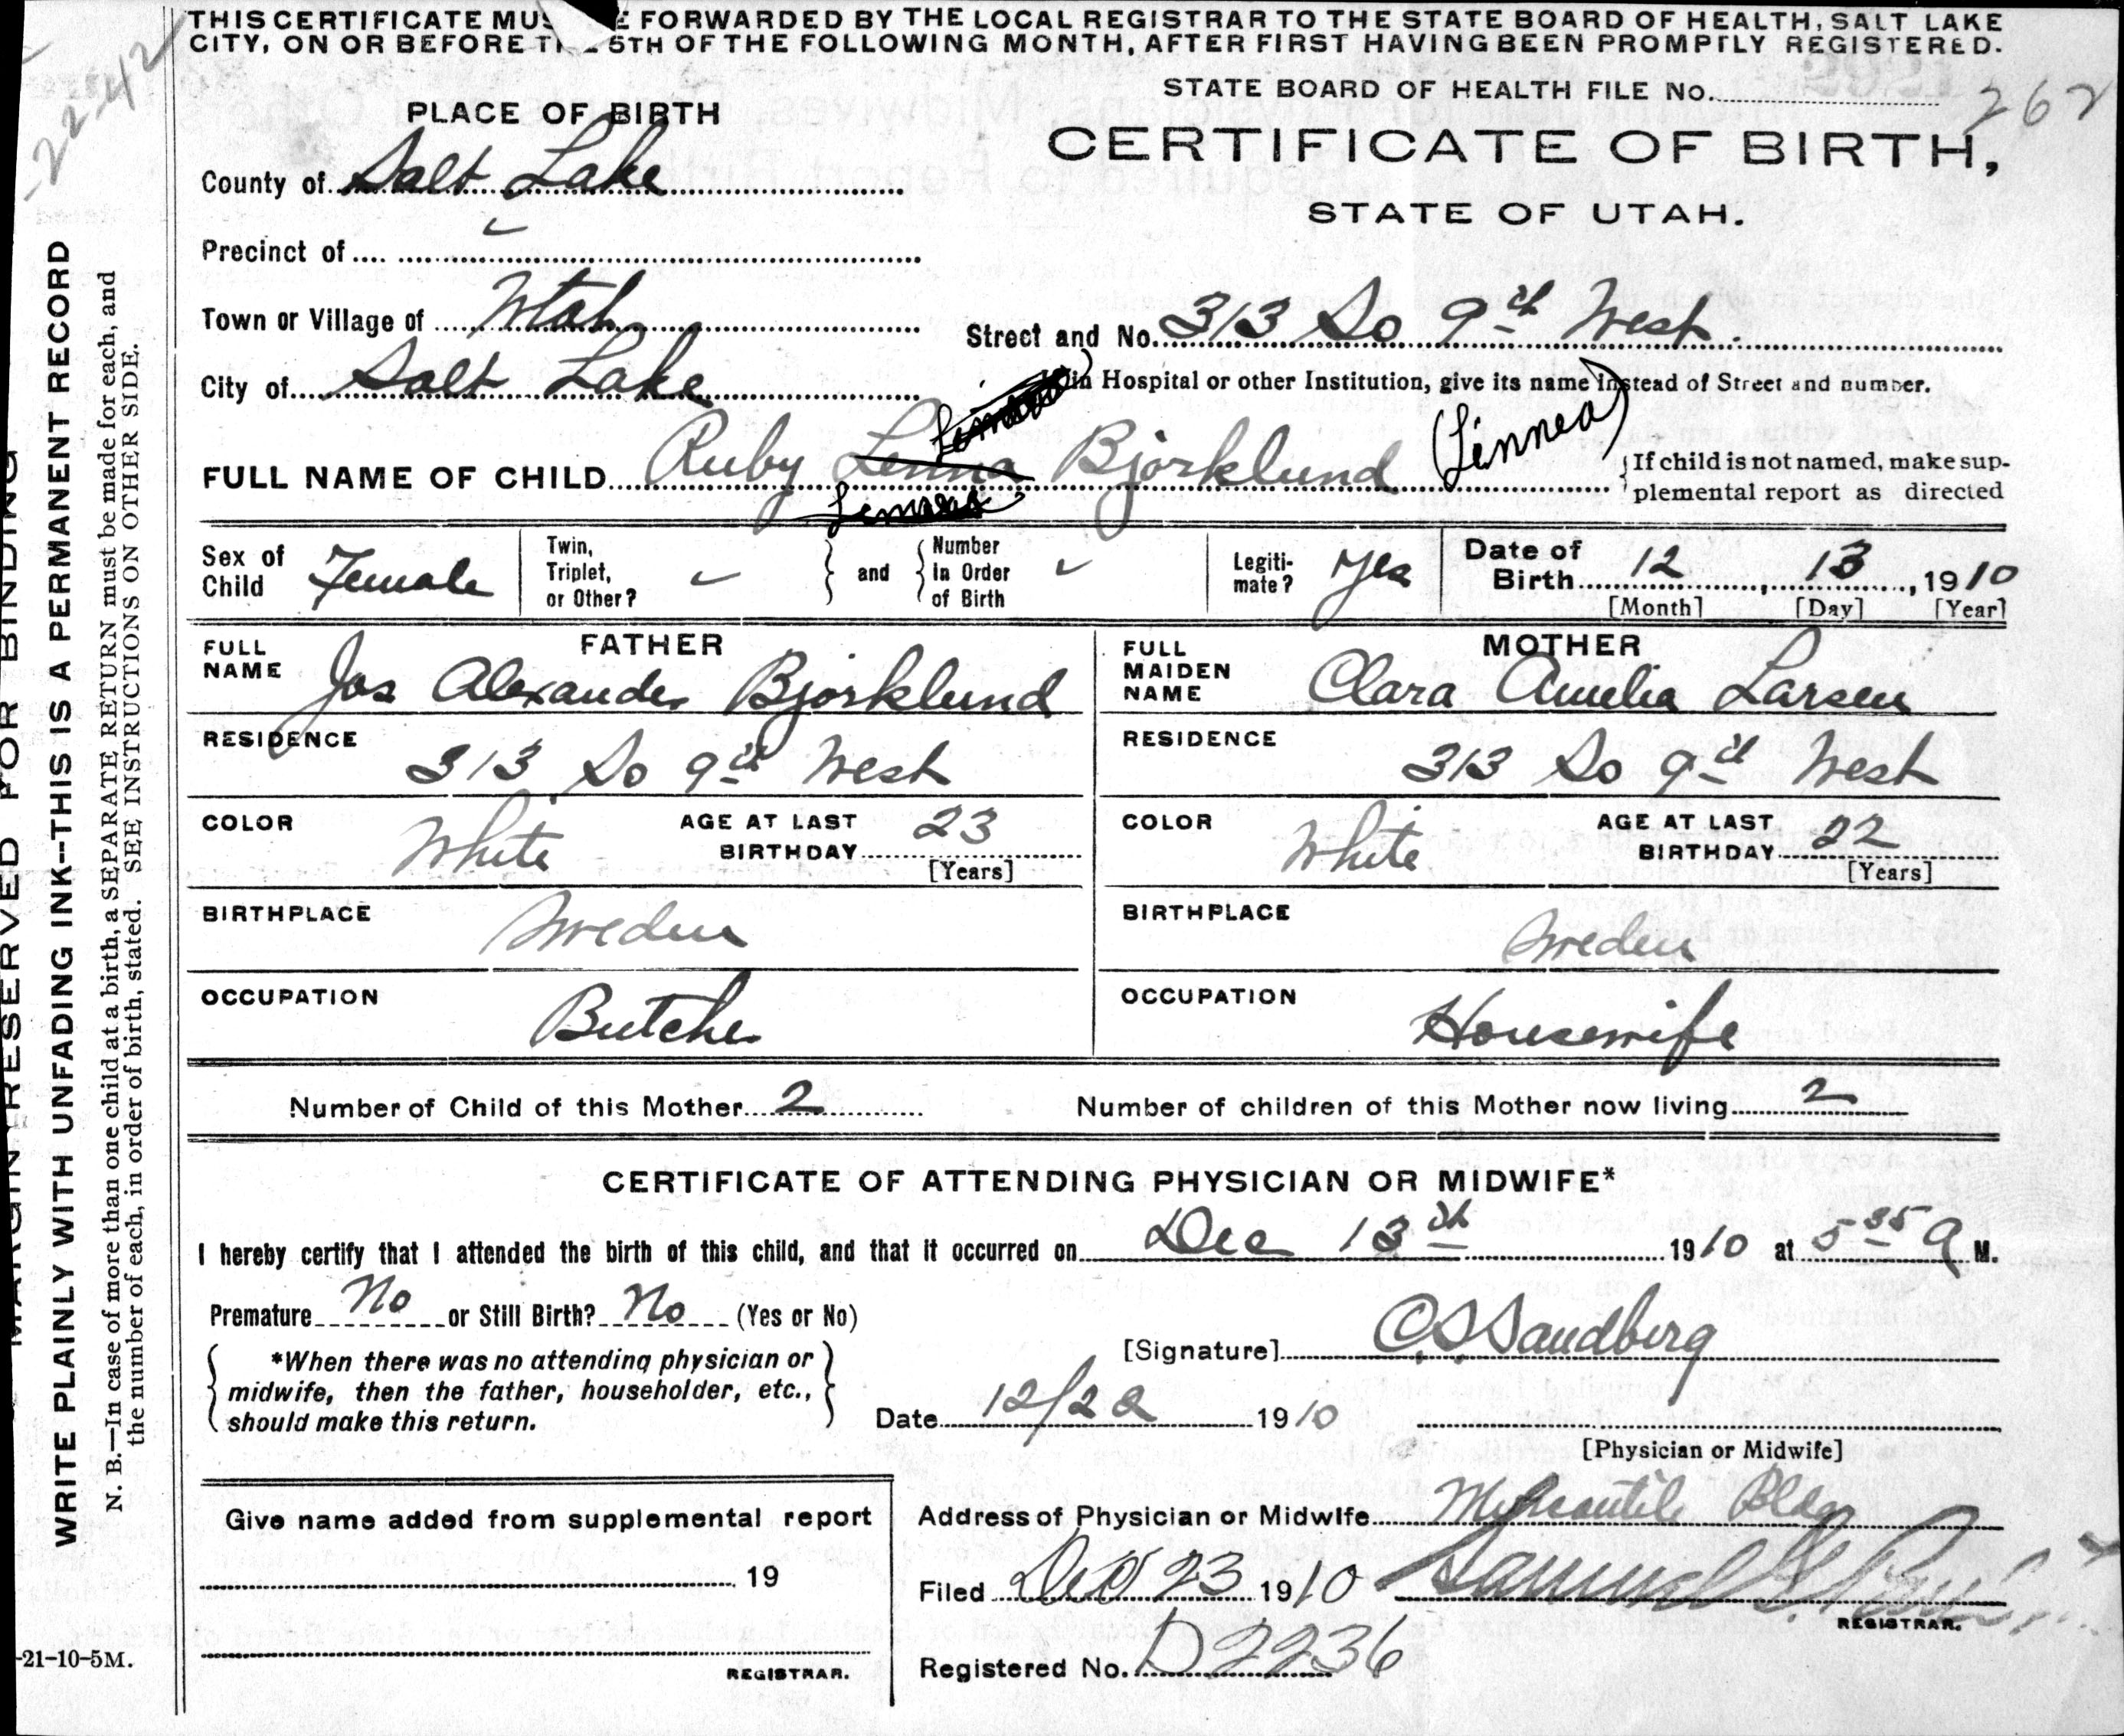 THIS CERTIFICATE MUS E FORWARDED BY THE LOCAL REGISTRAR TO THE STATE BOARD OF HEALTH, SALT LAKE
CITY, ON OR BEFORE T 5TH OF THE FOLLOWING MONTH, AFTER FIRST HAVING BEEN PROMPTLY REGISTERED.
-22-42
STATE BOARD OF HEALTH FILE No. 262
PLACE OF BIRTH
CERTIFICATE OF BIRTH,
STATE OF UTAH.
County of Salt Lake
Precinct of
Town or Village of Utah
Street and No. 313 So 9th West.
City of Salt Lake
in Hospital or other Institution, give its name instead of Street and number.
FULL NAME OF CHILD Ruby Lenna Bjorklund (Linnea)
If child is not named, make sup-
plemental report as directed
Sex of Child Female
Twin, Triplet, or Other?
and
Number in Order of Birth
Legiti-mate? Yes
Date of Birth 12, 13, 1910
[Month] [Day] [Year]
FATHER
FULL NAME Jos Alexander Bjorklund
MOTHER
FULL MAIDEN NAME Clara Amelia Larsen
RESIDENCE 313 So 9th West
RESIDENCE 313 So 9th West
COLOR White AGE AT LAST BIRTHDAY 23 [Years]
COLOR White AGE AT LAST BIRTHDAY 22 [Years]
BIRTHPLACE Sweden
BIRTHPLACE Sweden
OCCUPATION Butcher
OCCUPATION Housewife
Number of Child of this Mother 2
Number of children of this Mother now living 2
CERTIFICATE OF ATTENDING PHYSICIAN OR MIDWIFE*
I hereby certify that I attended the birth of this child, and that it occurred on Dec 13th 1910 at 5 35 A M.
Premature No or Still Birth? No (Yes or No)
*When there was no attending physician or
midwife, then the father, householder, etc.,
should make this return.
[Signature] C.S. Sandberg
Date 12/22 1910
[Physician or Midwife]
Give name added from supplemental report
19
REGISTRAR.
Address of Physician or Midwife Mercantile Bldg
Filed Dec 23 1910 Samuel G.
REGISTRAR.
Registered No. D2236
-21-10-5M.
MARGIN RESERVED FOR BINDING
WRITE PLAINLY WITH UNFADING INK--THIS IS A PERMANENT RECORD
N. B.—In case of more than one child at a birth, a SEPARATE RETURN must be made for each, and
the number of each, in order of birth, stated. SEE INSTRUCTIONS ON OTHER SIDE.